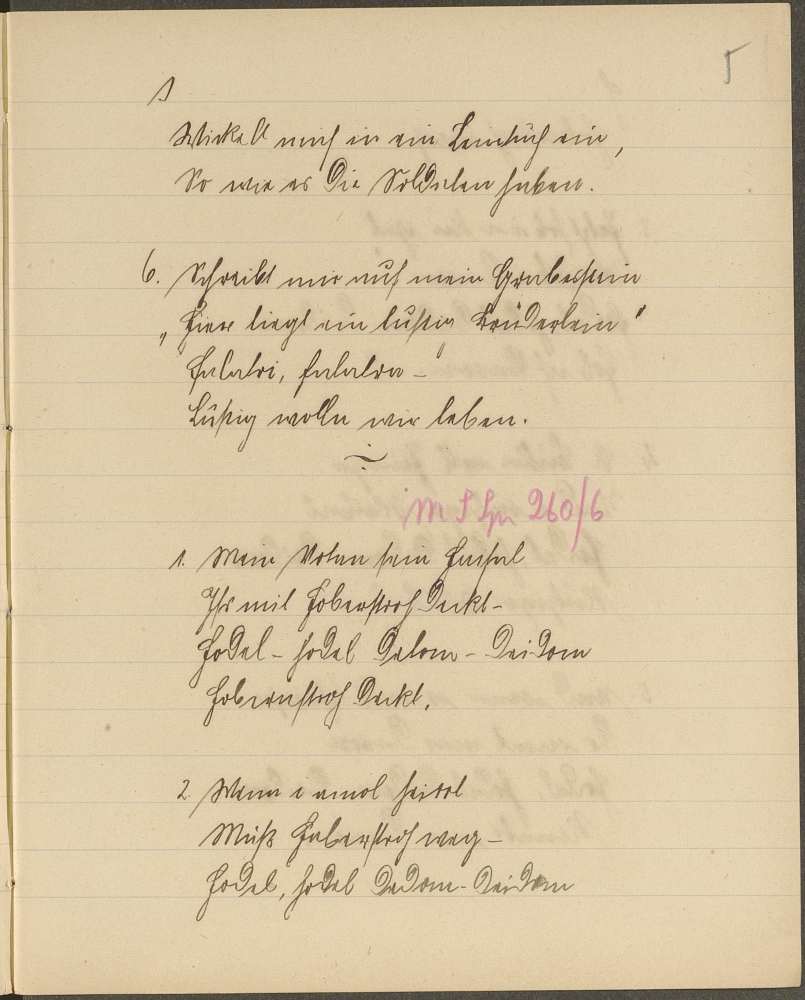 5
Wickelt mich in ein Leintuch ein,
So wie es die Soldaten haben.
6. Schreibt mir auf mein Grabesstein
„Hier liegt ein lustig Brüderlein"
Falalri, falalra –
Lustig wolln wir leben.
260/6
1. Mein Votan sein Haisal
Ist mit Hoberstroh deckt –
Hodel – hodel dalom – deidom
Hobernstroh deckt.
2. Wenn i amol heirol
Muß Haberstroh weg –
Hodel, hodel dadom – deidom